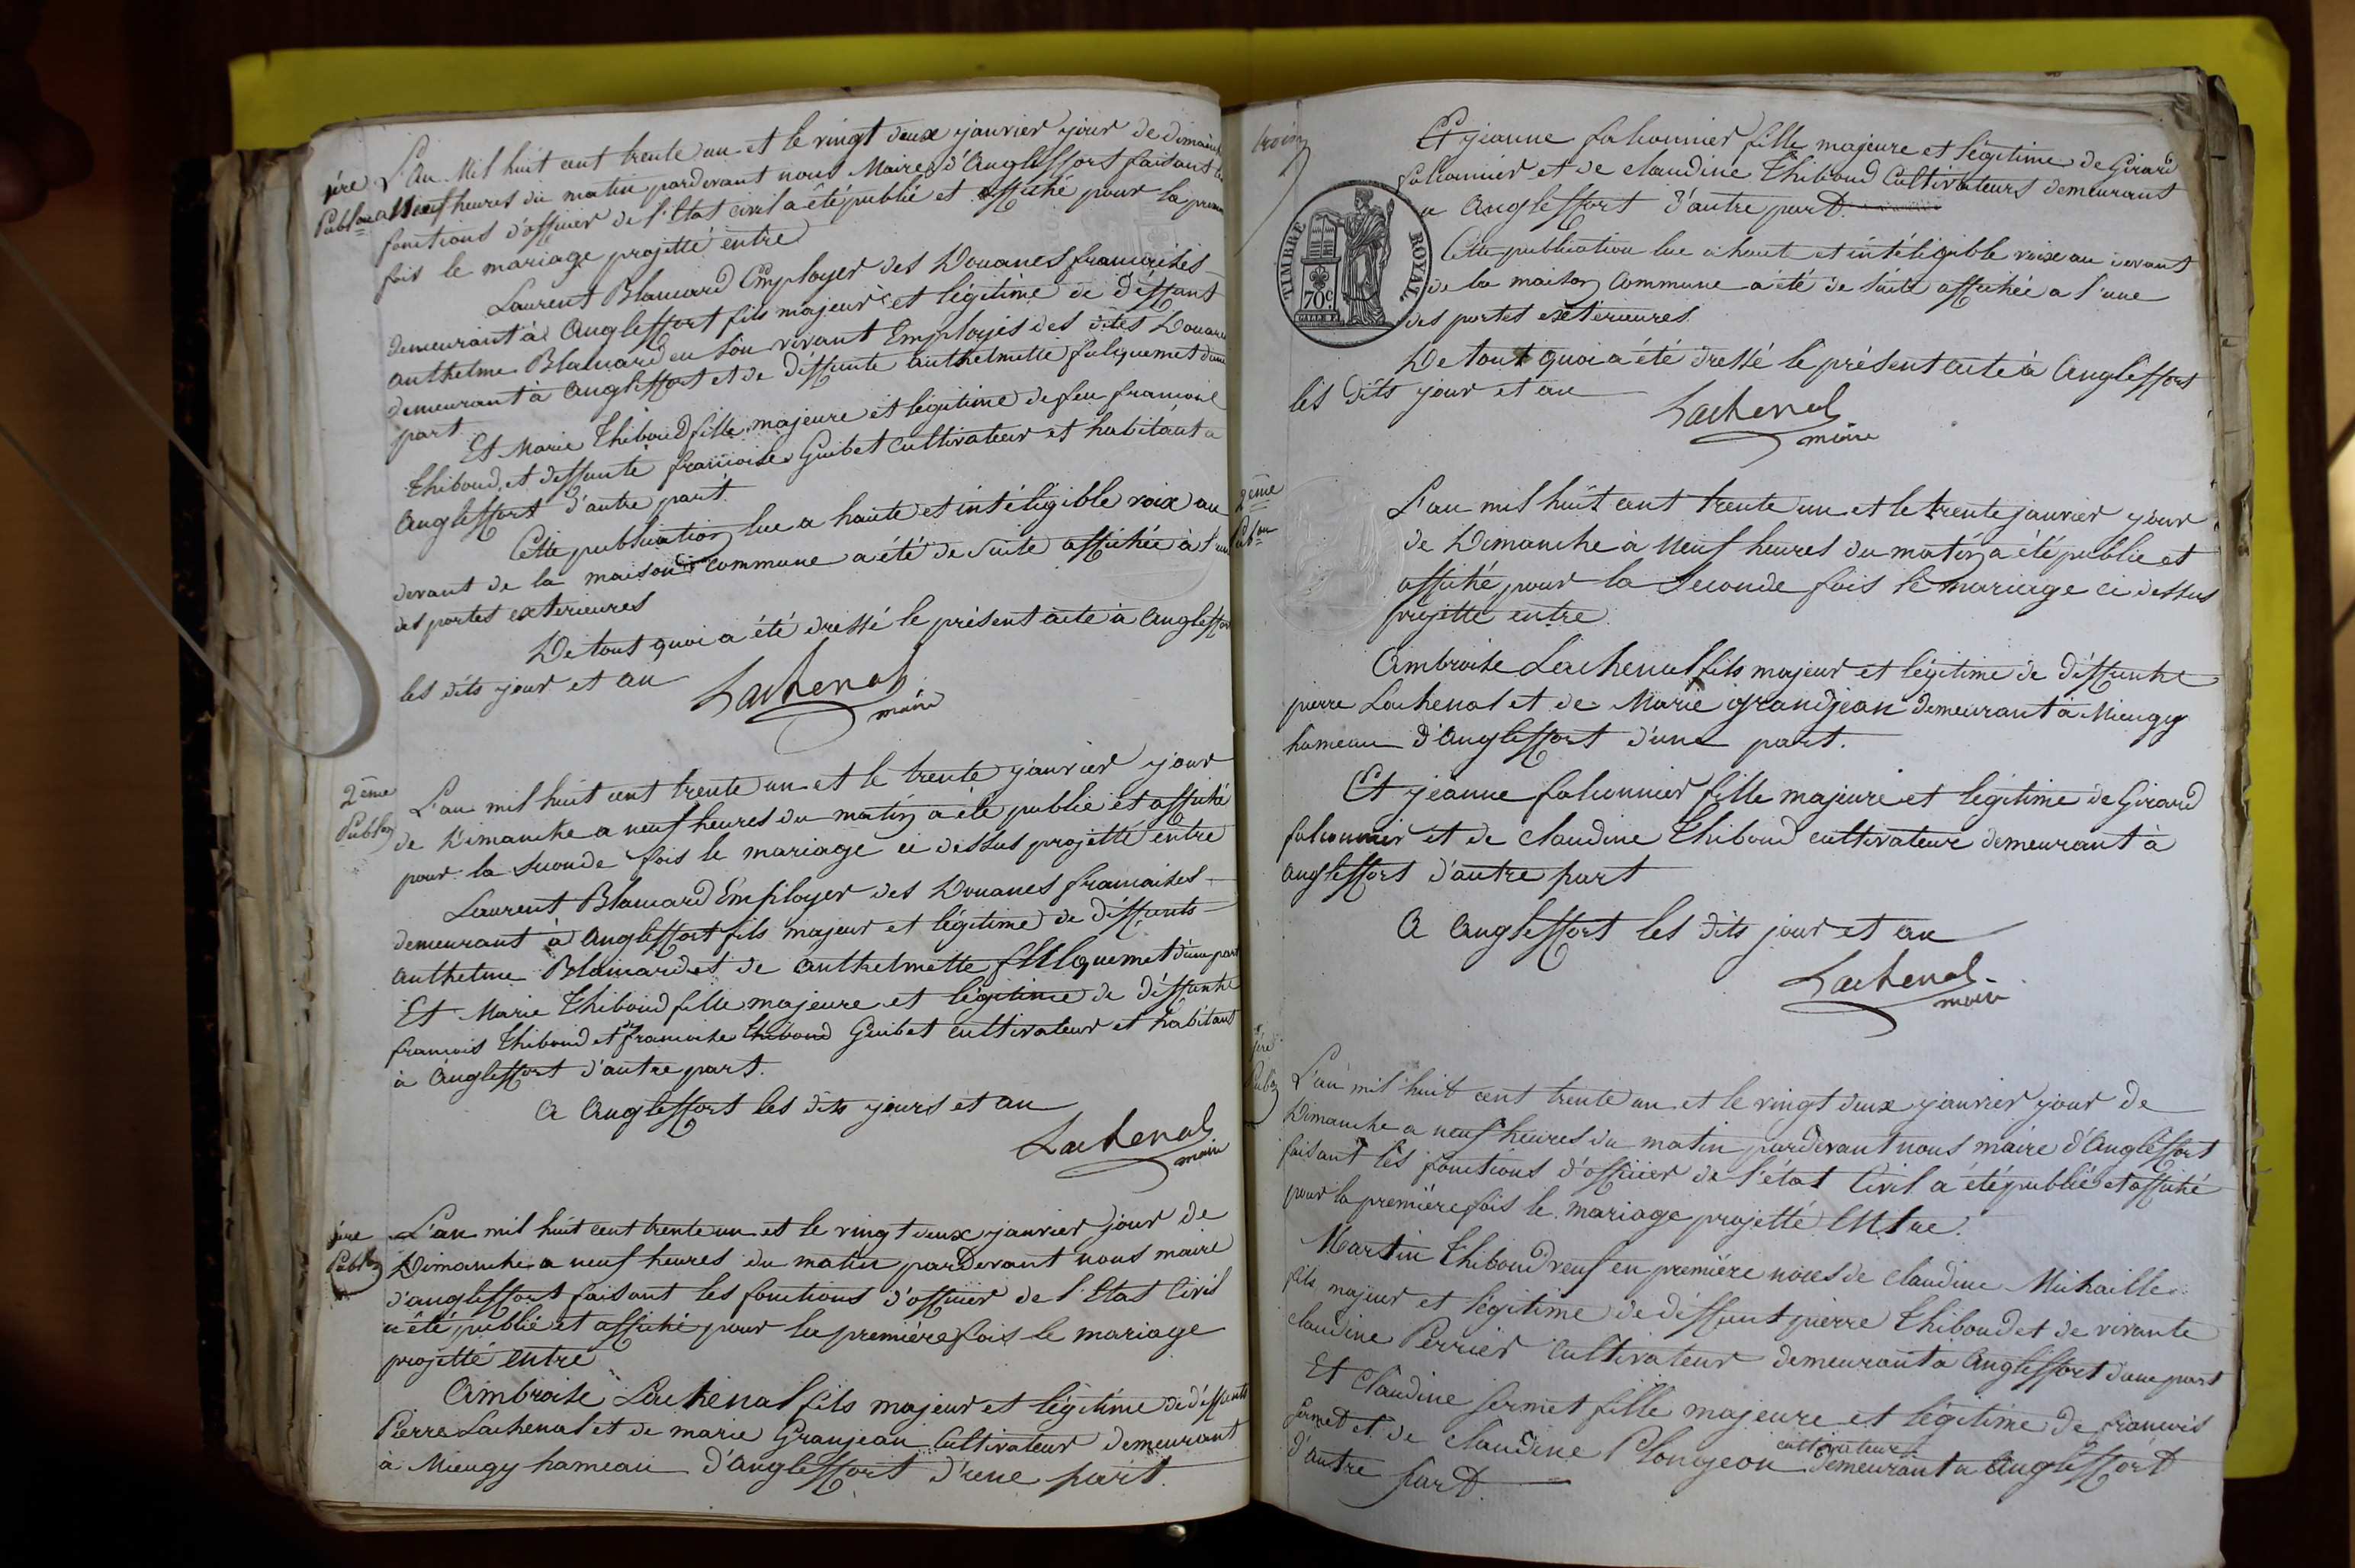 1ère
Publon
L'An Mil huit cent trente un et le vingt deux janvier jour de dimanche
a Neuf heures du matin pardevant nous Maire d'Angleffort faisant les
fonctions d'officier de l'Etat civil a été publié et affiché pour la
fois le mariage projetté entre
Laurent Blancard Employer des Douanes francaises
demeurant à Angleffort fils majeur et légitime de deffunt
anthelme Blancard en son vivant Employés des dites Douanes
demeurant à Angleffort et de deffunte anthelmette falquemet d'une
part
Et Marie Thiboud fille majeure et légitime de feu francois
Thiboud, et deffunte francoise Guibet cultivateur et habitant a
Angleffort d'autre part.
Cette publication lue a haute et intéligible voix au
devant de la maison commune a été de suite affichée à l'une
des portes exterieures
De tout quoi a été dressé le présent acte à Angleffort
les dits jour et an
Lachenal
maire
2ème
Publon
L'an mil huit cent trente un et le trente janvier jour
de Dimanche a neuf heures du matin a été publié et affiché
pour la seconde fois le mariage ci dessus projetté entre
Laurent Blancard Employer des Douanes francaises
demeurant à Angleffort fils majeur et légitime de déffunts
anthelme Blancard et de anthelmette falquemet d'une part
Et Marie Thiboud fille majeure et légitime de déffunte
francois Thiboud et de francoise Thiboud Guibet cultivateur et habitant
à Angleffort d'autre part.
A Angleffort les dits jours et an
Lachenal
maire
1ère
Publon
L'an mil huit cent trente un et le vingt deux janvier jour de
Dimanche a neuf heures du matin pardevant nous maire
d'angleffort faisant les fonctions d'officier de l'Etat Civil
a été publié et affiché pour la première fois le mariage
projetté entre
Ambroise Lachenal fils majeur et légitime de déffunts
Pierre Lachenal et de marie Granjean Cultivateur demeurant
à Mieugy hameau d'Angleffort d'une part.
trois
Et jeanne falconnier fille majeure et légitime de Girard
falconnier et de claudine Thiboud Cultivateurs demeurant
a Angleffort d'autre part.
TIMBRE ROYAL
70c
Cette publication lue a haut et intéligible voix au devant
de la maison Commune a été de suite affichée a l'une
des portes extérieures.
De tout quoi a été dressé le présent acte à Angleffort
les dits jour et an
Lachenal
maire
2ème
Pubon
L'an mil huit cent trente un et le trente janvier jour
de Dimanche à Neuf heures du matin a été publié et
affiché, pour la Seconde fois le mariage ci dessus
projetté entre
Ambroise Lachenal fils majeur et légitime de déffunte
pierre Lachenal et de Marie grandjean demeurant à Mieugy
hameau d'Angleffort d'une part.
Et jeanne falconnier fille majeure et légitime de Girard
falconnier et de claudine Thiboud cultivateur demeurant à
angleffort d'autre part
A Angleffort les dits jour et an
Lachenal
maire
1ère
Pubon
L'an mil huit cent trente un et le vingt deux janvier jour de
Dimanche a neuf heures du matin pardevant nous maire d'Angleffort
faisant les fonctions d'officier de l'état Civil a été publié et affiché
pour la première fois le mariage projetté entre.
Martin Thiboud veuf en première noces de claudine Michaille
fils majeur et légitime de déffunt pierre Thiboud et de vivante
claudine Perrier Cultivateur demeurant a Angleffort d'une part
Et Claudine fermet fille majeure et légitime de francois
fermet et de claudine Plongeon cultivateurs demeurant a Angleffort
d'autre part.